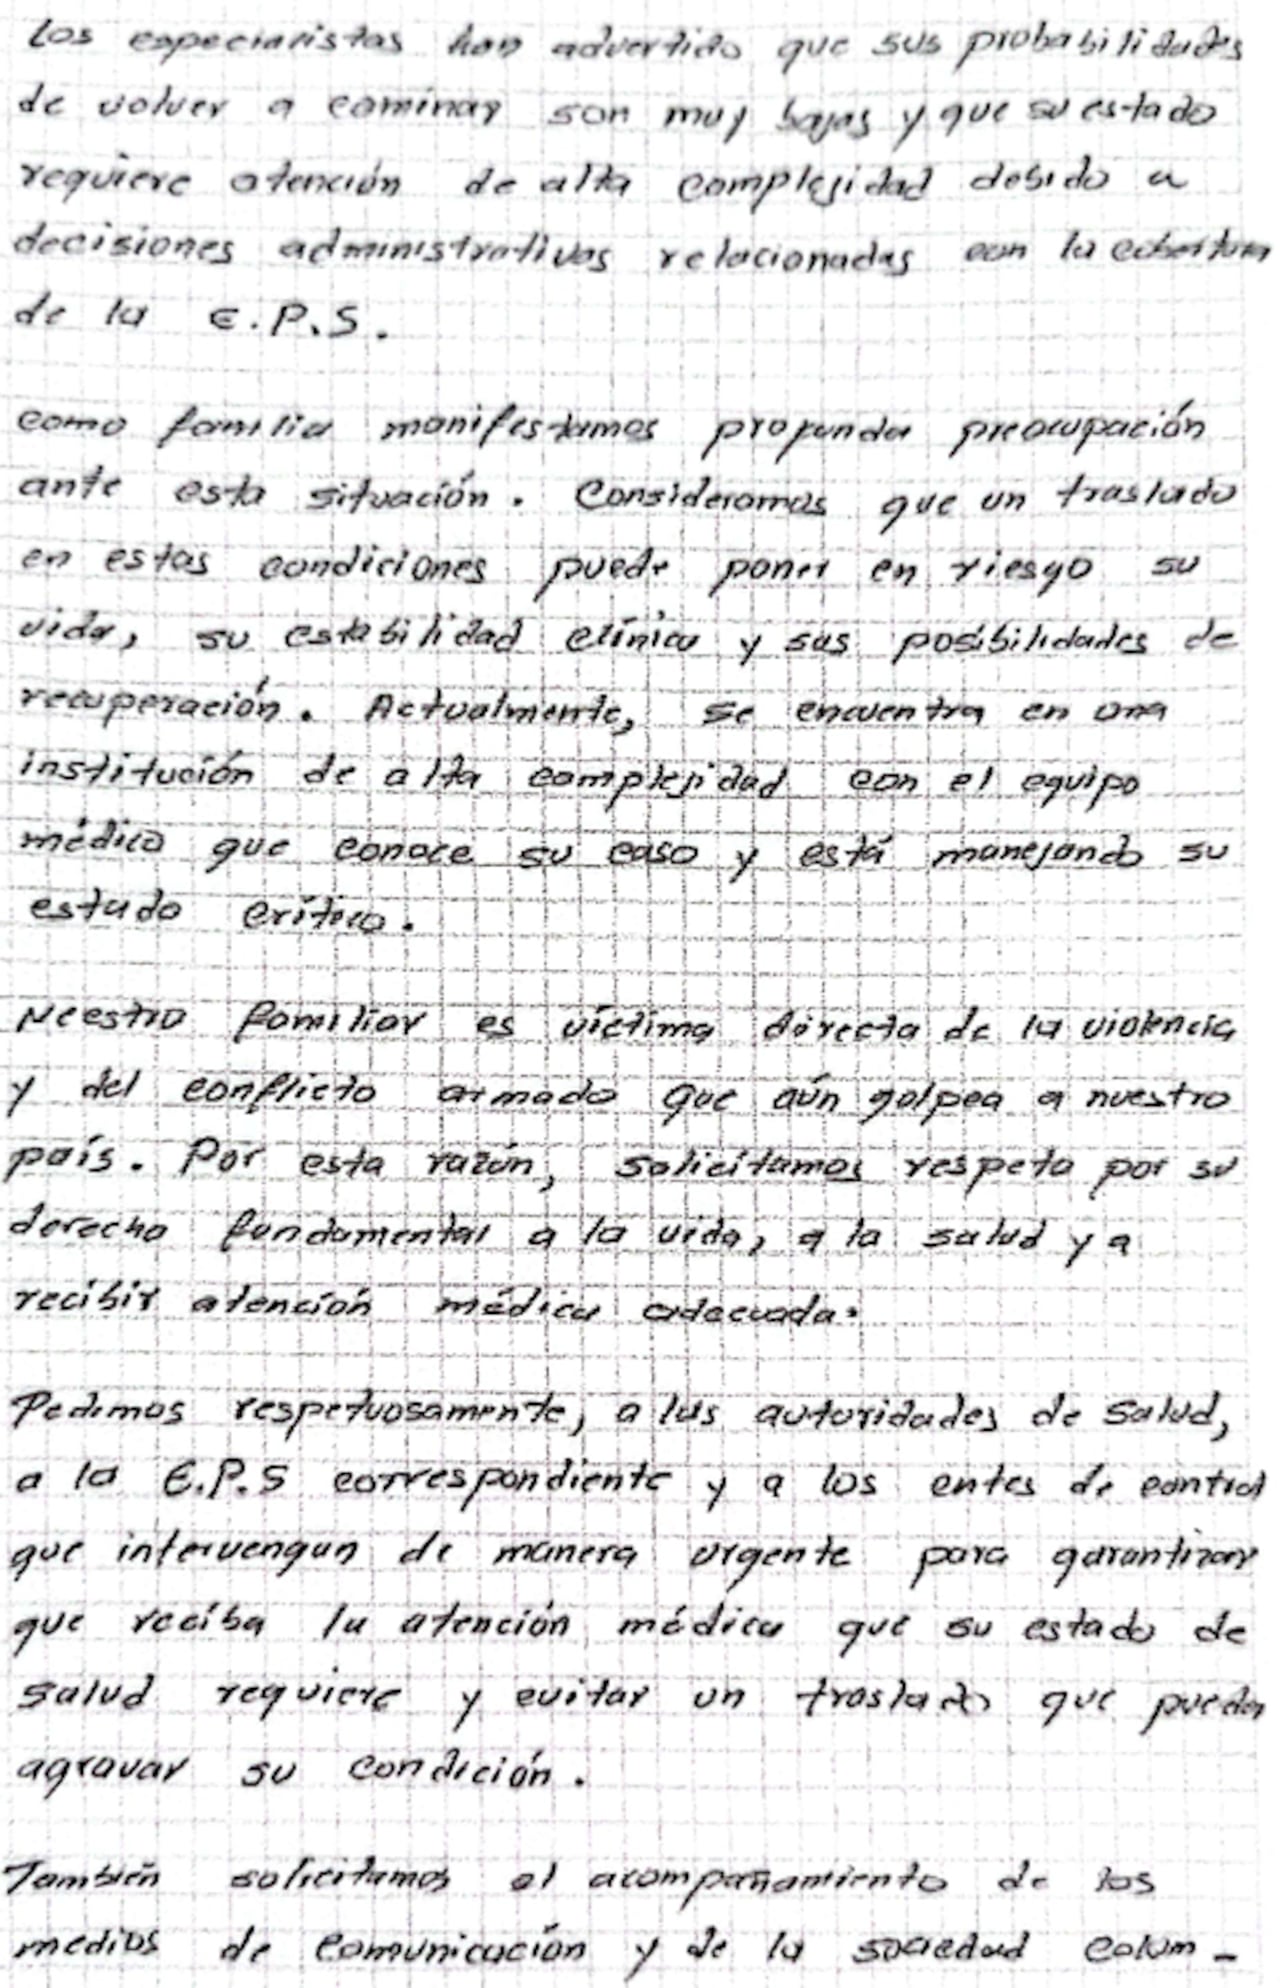 Los especiaristas han advertido que sus probabilidades
de volver a caminar son muy bajas y que su estado
requiere atención de alta complejidad debido a
decisiones administrativas relacionadas con la cobertura
de la E.P.S.
como familia manifestamos profunda preocupación
ante esta situación. Consideramos que un traslado
en estas condiciones puede poner en riesgo su
vida, su estabilidad clínica y sus posibilidades de
recuperación. Actualmente, se encuentra en una
institución de alta complejidad con el equipo
médico que conoce su caso y está manejando su
estado crítico.
Neestro familiar es víctima directa de la violencia
y del conflicto armado que aún golpea a nuestro
país. Por esta razón, solicitamos respeto por su
derecho fundamental a la vida, a la salud y a
recibir atención médica adecuada.
Pedimos respetuosamente, a las autoridades de salud,
a la E.P.S correspondiente y a los entes de control
que intervengan de manera urgente para garantizar
que reciba la atención médica que su estado de
salud requiere y evitar un traslado que pueda
agravar su condición.
También solicitamos el acompañamiento de los
medios de comunicación y de la sociedad colom-